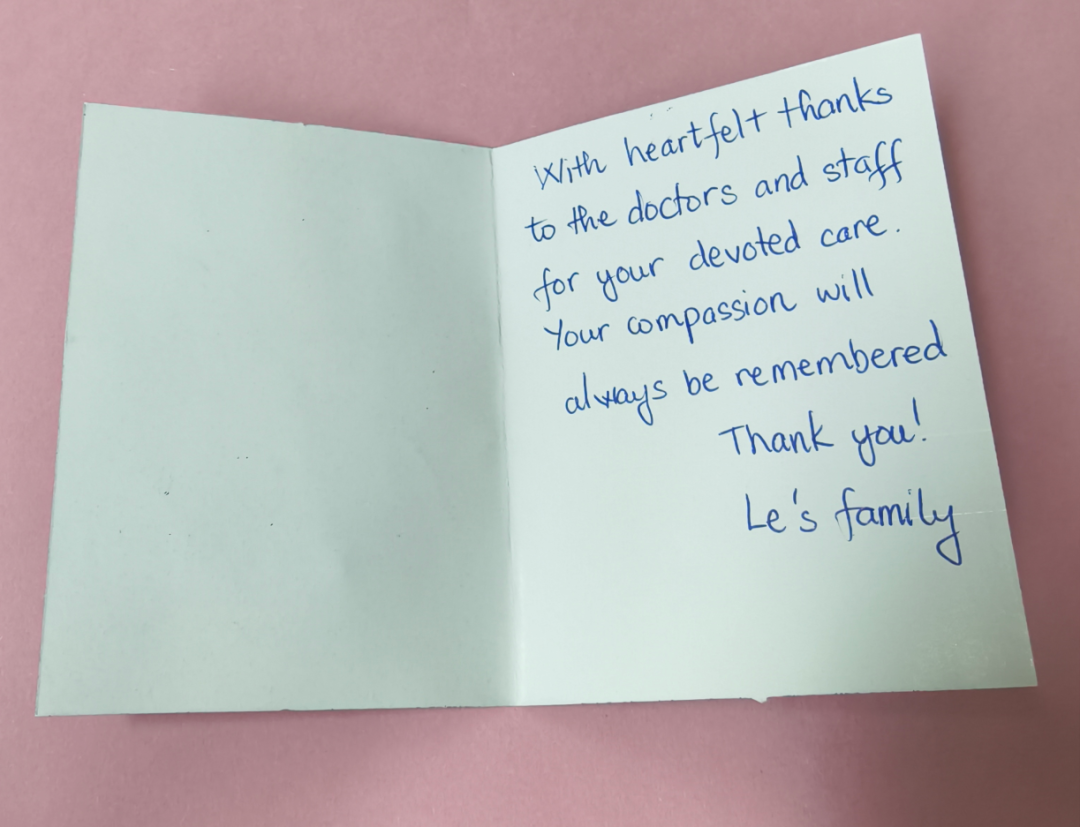 With heartfelt thanks
to the doctors and staff
for your devoted care.
Your compassion will
always be remembered
Thank you!
Le's family